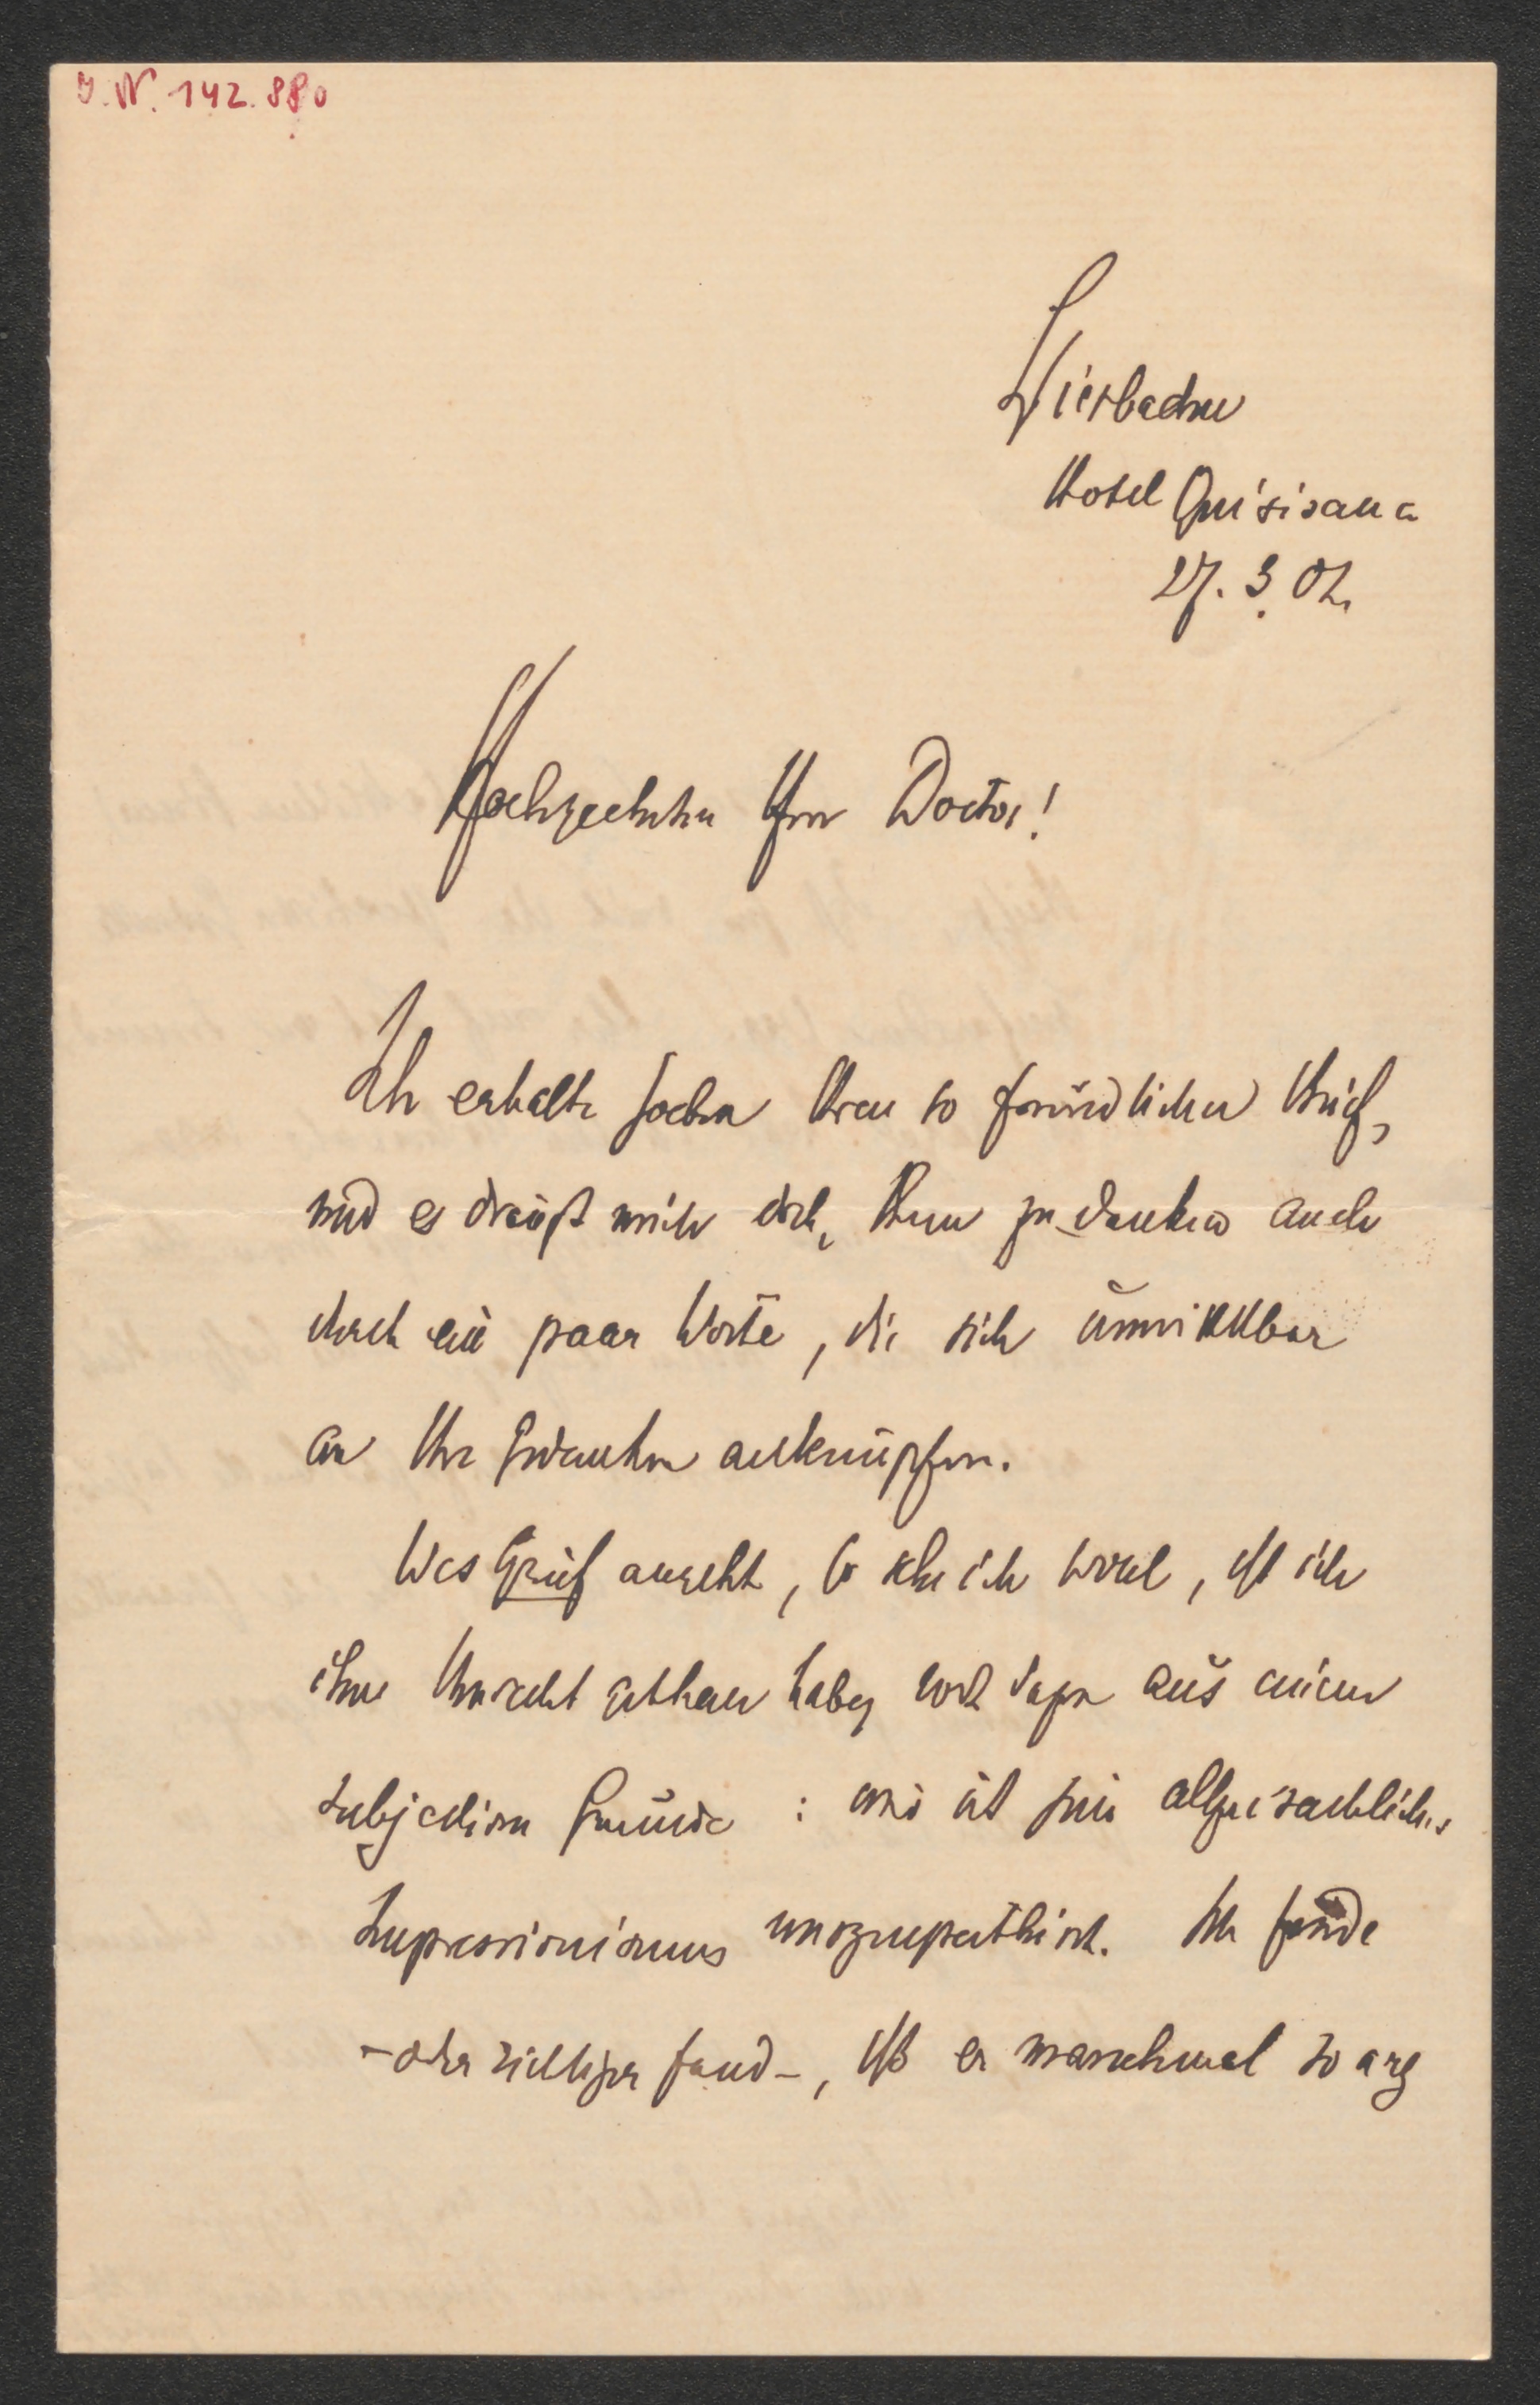 J.N. 142.880
Wiesbaden
Hotel Quisisana
27. 3. 02.
Hochgeehrter Herr Doctor!
Ich erhalte soeben Ihren so freundlichen Brief,
und es drängt mich doch, Ihnen zu danken auch
durch ein paar Worte, die sich unmittelbar
an Ihre Gedanken anknüpfen.
Was Greif angeht, so sehe ich wohl, daß ich
ihm Unrecht gethan habe, wohl sogar aus einem
subjectiven Grunde: mir ist sein allzu sachlicher
Impressionismus unsympathisch. Ich finde
– oder richtiger fand –, daß er manchmal so arg